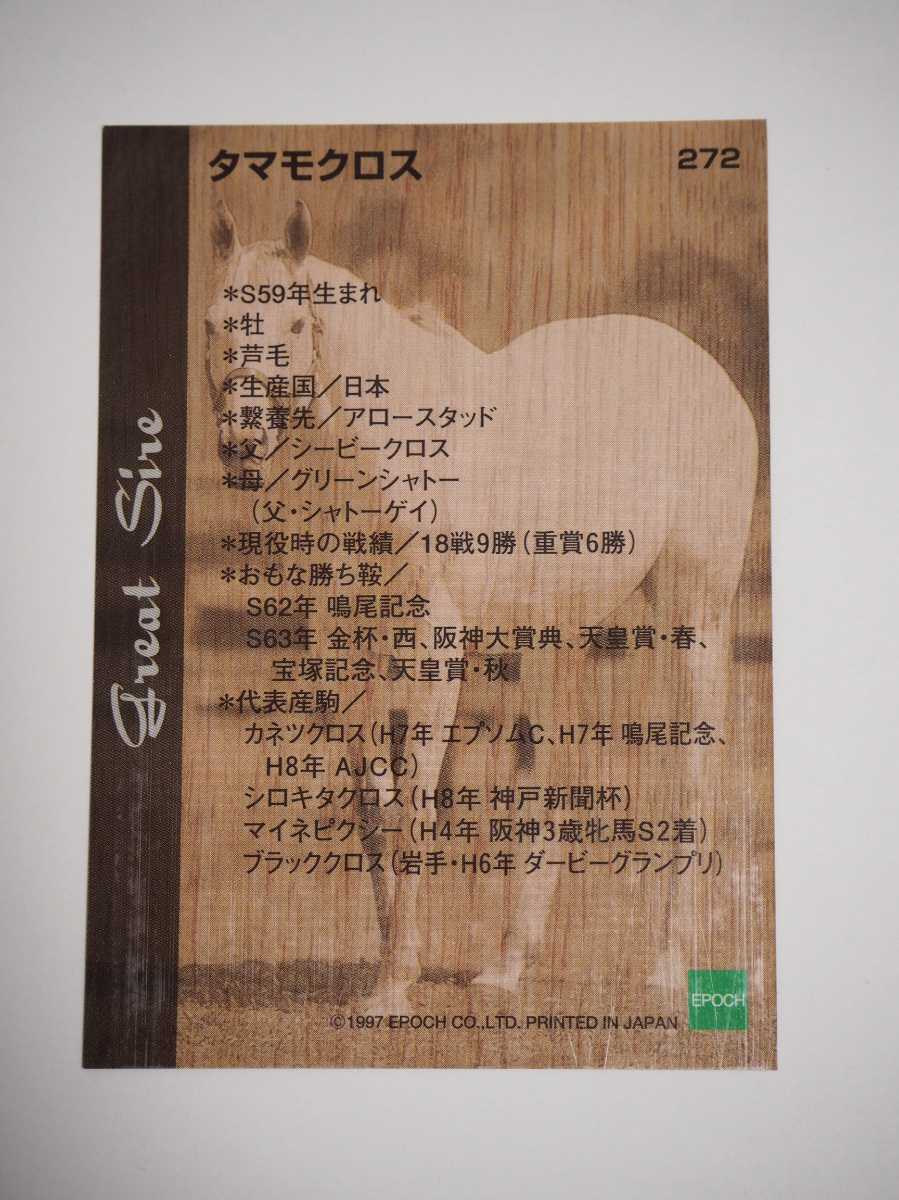 タマモクロス
272
*S59年生まれ
*牡
*芦毛
*生産国/日本
*繋養先/アロースタッド
*父/シービークロス
*母/グリーンシャトー
(父・シャトーゲイ)
*現役時の戦績/18戦9勝(重賞6勝)
*おもな勝ち鞍/
S62年 鳴尾記念
S63年 金杯・西、阪神大賞典、天皇賞・春、
宝塚記念、天皇賞・秋
*代表産駒/
カネツクロス(H7年 エプソムC、H7年 鳴尾記念、
H8年 AJCC)
シロキタクロス(H8年 神戸新聞杯)
マイネピクシー(H4年 阪神3歳牝馬S2着)
ブラッククロス(岩手・H6年 ダービーグランプリ)
Great Sire
EPOCH
©1997 EPOCH CO.,LTD. PRINTED IN JAPAN